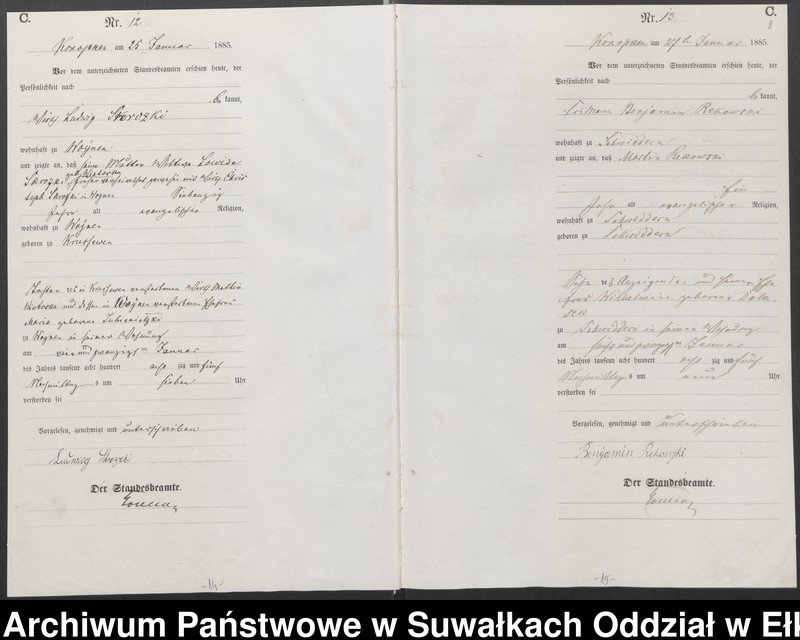 C.
Nr. 12.
Konopken am 25. Januar 1885.
Vor dem unterzeichneten Standesbeamten erschien heute, der
Persönlichkeit nach
be kannt,
Wirth Ludwig
wohnhaft zu Woynen
und zeigte an, daß seine Mutter Wittwe Lowisa
geb. früher verheirathet gewesen mit Wirth Chris
toph in Woynen Siebenzig
Jahre alt evangelischer Religion,
wohnhaft zu Woynen
geboren zu Krussewen
Tochter des in Krussewen verstorbenen Wirth
und dessen in Woynen verstorbenen Ehefrau
Maria geborene
zu Woynen in seiner Wohnung
am vier und zwanzigsten Januar
des Jahres tausend acht hundert acht zig und fünf
Nachmittag s um sieben Uhr
verstorben sei
Vorgelesen, genehmigt und unterschrieben
Ludwig
Der Standesbeamte.
-14-
C.
8
Nr. 13.
Konopken am 27ten Januar 1885.
Vor dem unterzeichneten Standesbeamten erschien heute, der
Persönlichkeit nach
be kannt,
Benjamin Rekowski
wohnhaft zu Schwiddern
und zeigte an, daß Martin Rekowski
Ein
Jahr alt evangelischer Religion,
wohnhaft zu Schwiddern
geboren zu Schwiddern
Sohn des Anzeigenden und seiner Ehe
frau Wilhelmine geborene
zu Schwiddern in seiner Wohnung
am sechs und zwanzigsten Januar
des Jahres tausend acht hundert acht zig und fünf
Nachmittag s um neun Uhr
verstorben sei
Vorgelesen, genehmigt und unterschrieben
Benjamin Rekowski
Der Standesbeamte.
-15-
Archiwum Państwowe w Suwałkach Oddział w Eł